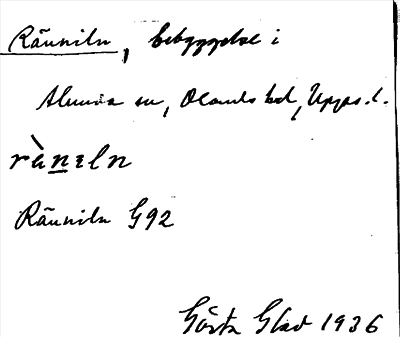 Räuniln, bebyggelse i
Alunda sn, Olands hd, Upps. l.
rä̀neln
Räuniln G92
Gösta Glad 1936